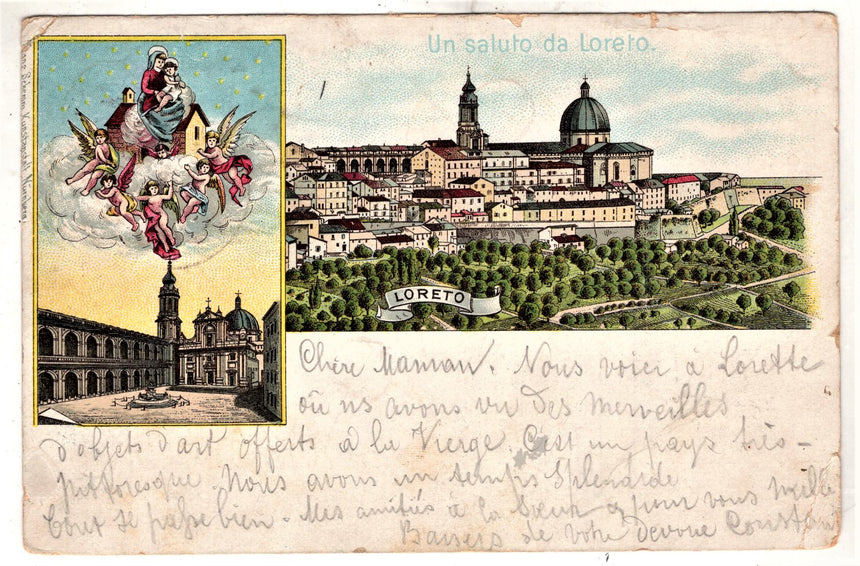 Un saluto da Loreto.
LORETO
Chère Maman. Nous voici à Lorette
où ns avons vu des merveilles
d'objets d'art offerts à la Vierge. C'est un pays très-
pittoresque. Nous avons un temps splendide
Tout se passe bien. Mes amitiés à la Sœur & pour vous mille
Baisers de votre dévoué Constan